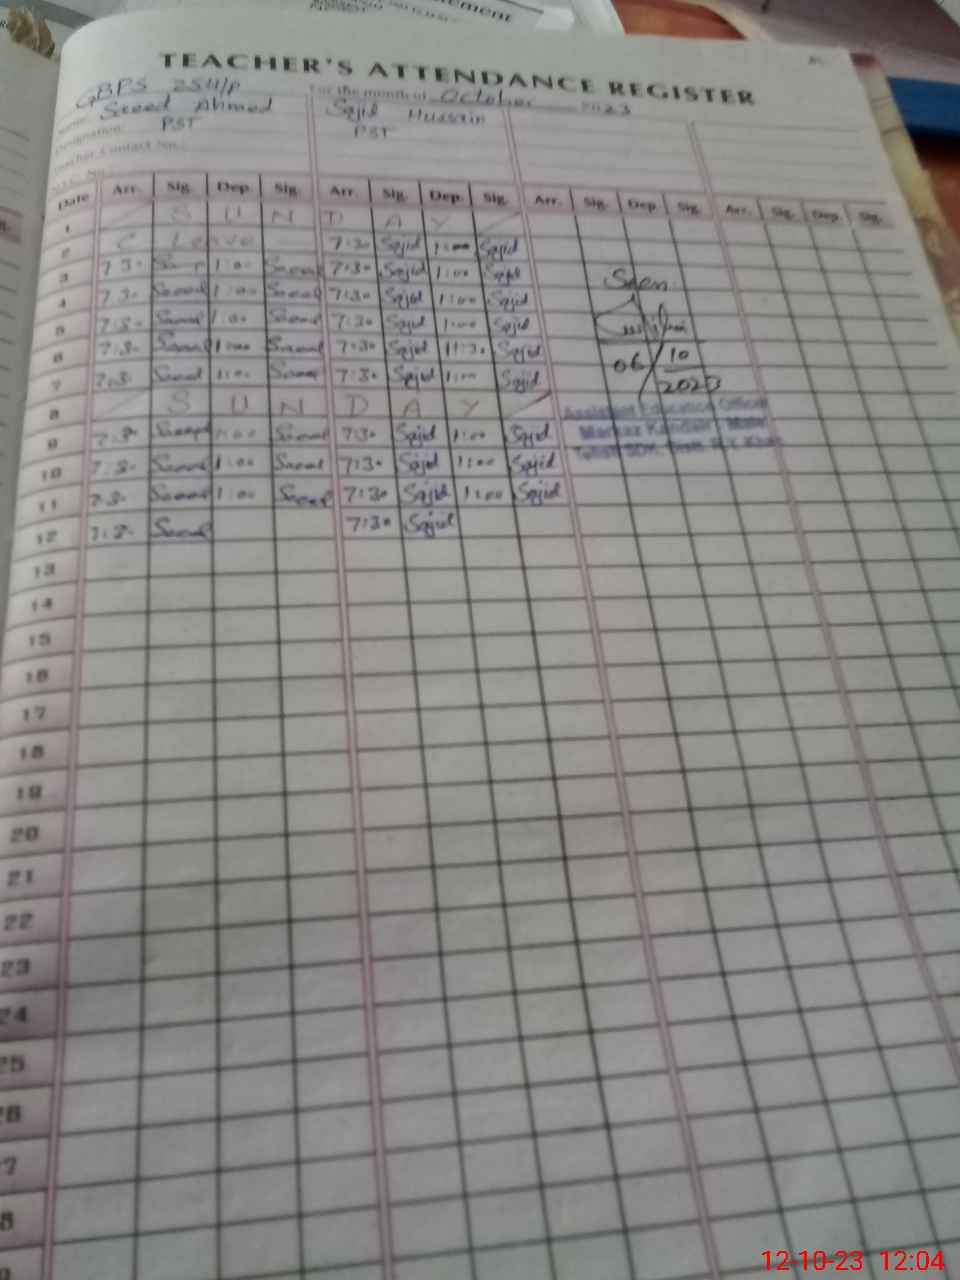 TEACHER'S ATTENDANCE REGISTER
GBPS 25H/P For the month of October 2023
Name: Saeed Ahmed Sajid Hussain
Designation: PST PST
Teacher Contact No.:
Date Arr. Sig. Dep. Sig. Arr. Sig. Dep. Sig. Arr. Sig. Dep. Sig. Arr. Sig. Dep. Sig.
1 S U N D A Y
2 C Leave 7:30 Sajid 1:00 Sajid
3 7:30 Saeed 1:00 Saeed 7:30 Sajid 1:00 Sajid
4 7:30 Saeed 1:00 Saeed 7:30 Sajid 1:00 Sajid
5 7:30 Saeed 1:00 Saeed 7:30 Sajid 1:00 Sajid
6 7:30 Saeed 1:00 Saeed 7:30 Sajid 11:30 Sajid
7 7:30 Saeed 1:00 Saeed 7:30 Sajid 1:00 Sajid
8 S U N D A Y
9 7:30 Saeed 1:00 Saeed 7:30 Sajid 1:00 Sajid
10 7:30 Saeed 1:00 Saeed 7:30 Sajid 1:00 Sajid
11 7:30 Saeed 1:00 Saeed 7:30 Sajid 1:00 Sajid
12 7:30 Saeed 7:30 Sajid
13
14
15
16
17
18
19
20
21
22
23
24
25
26
Seen
06/10
2023
Assistant Education Officer
Markaz Kandair Male
12-10-23 12:04